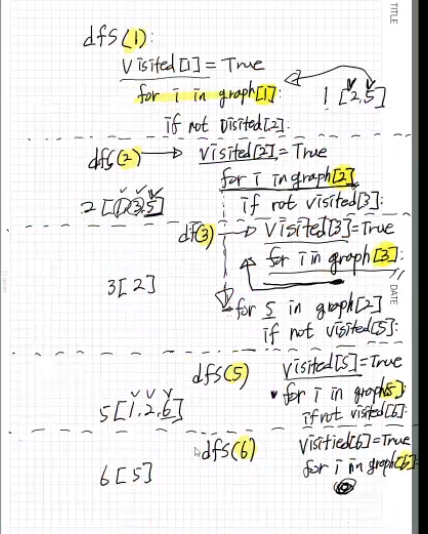 TITLE
dfs(1):
visited[1] = True
for i in graph[1]:
1 [2,5]
if not visited[2]:
dfs(2) → visited[2] = True
for i in graph[2]
2 [1,3,5]
if not visited[3]:
df(3) → visited[3]=True
for i in graph[3]:
3[2]
DATE
for 5 in graph[2]
if not visited[5]:
dfs(5)
visited[5]=True
for i in graph[5]:
5[1,2,6]
if not visited[6]:
dfs(6)
visitied[6]=True
for i in graph[6]:
6[5]